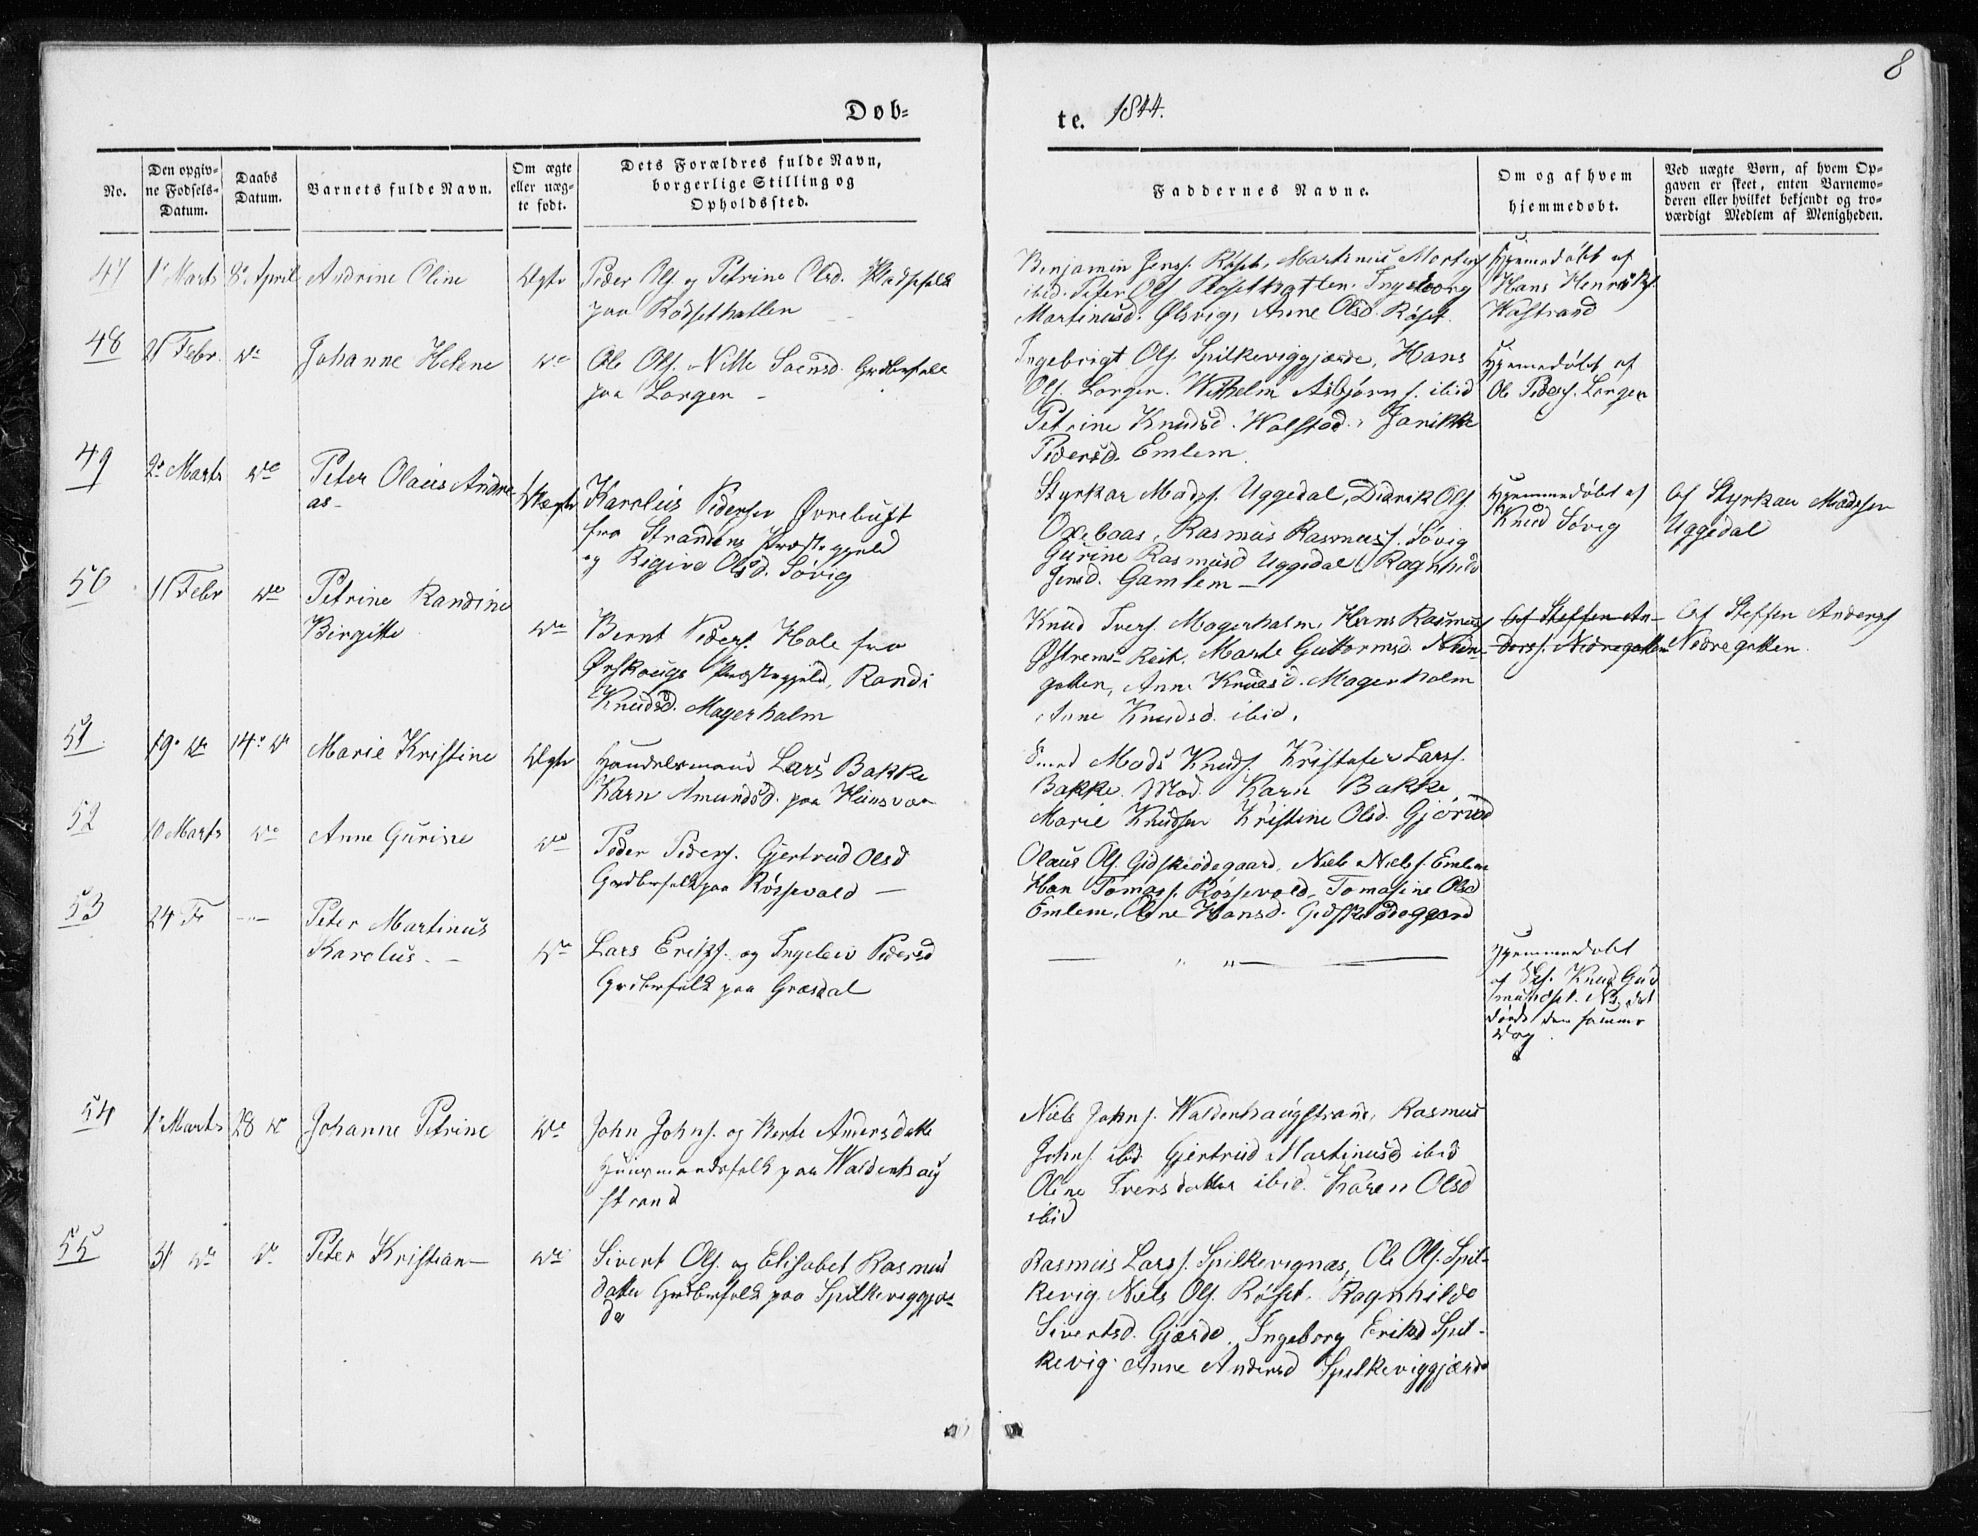 8
Døb-
te. 1844.
No.
Den opgiv-
ne Fødsels-
Datum.
Daabs
Datum.
Barnets fulde Navn.
Om ægte
eller uæg-
te født.
Dets Forældres fulde Navn,
borgerlige Stilling og
Opholdssted.
Faddernes Navne.
Om og af hvem
hjemmedøbt.
Ved uægte Børn, af hvem Op-
gaven er skeet, enten Barnemo-
deren eller hvilket bekjendt og tro-
værdigt Medlem af Menigheden.
47 1 Marts 8 April Andrine Oline Ægte Peder Ols. og Petrine Olsd. Pladsfolk
paa Rødsethatlen
Benjamin Jens. Røset, Martinus Mortens
ibid. Peter Ols. Røsethatlen. Ingeborg
Martinusd. Ølsvig, Anne Olsd. Røset.
Hjemmedøbt af
Hans Henriks.
48 21 Febr. do Johanne Helene do Ole Ols. Grdbrfolk
paa Lorgen
Ingebrigt Ols. Spilkeviggjærde, Hans
Ols. Lorgen. Wilhelm Asbjørns. ibid
Petrine Knudsd. Walstad, Janikke
Pedersd. Emlem
Hjemmedøbt af
Ole Peders. Lorgen
49 2 Marts do Peter Olaus Andre-
as Uægte Karolus Pedersen Øvrebust
fra Strandens Præstegjeld
og Regine Olsd. Søvig
Styrkar Mads. Uggedal, Didrik Ols.
Oxebaas, Rasmus Rasmuss. Søvig
Gurine Rasmusd Uggedal, Ragnhild
Jensd. Gamlem
Hjemmedøbt af
Knud Søvig
Af Styrkar Madssen
Uggedal
50 11 Febr do Petrine Randine
Birgitte do Bernt Peders. Hole fra
Ørskougs Præstegjeld, Randi
Knudsd. Magerholm
Knud Ivers. Magerholm, Hans Rasmus
Østrems- Reit. Marte Guttormsd. Nedre-
gotten, Anne Knudsd. Magerholm
Anne Knudsd. ibid.
Af Steffen An-
ders. Nedregotten
Af Steffen Anders
Nedregotten.
51 19 do 14 do Marie Kristine Ægte Handelsmand Lars Bakke
Karn Amundsd. paa
Mads Knuds. Kristofer Lars.
Bakke. Mad. Karn Bakke
Marie Knudsen Kristine Olsd. Gjørud
52 10 Marts do Anne Gurine do Peder Peders. Gjertrud Olsd
Grdbrfolk paa Røssevold
Olaus Ols. Gidskeødegaard, Niels Niels. Emlem
Han Tomas. Røssevold, Tomasine Olsd
Emlem, Oline Hansd. Gidskeødegaard
53 24 F Peter Martinus
Karolus do Lars Eriks. og Ingeleiv Pedersd
Grdbrfolk paa Græsdal
Hjemmedøbt
af Knud Gud
mundset. NB. det
døde den samme
dag
54 1 Marts 28 do Johanne Petrine do John Johns. og Berte Andersdatter
Huusmandsfolk paa Waldenhaug
strand
Niels Johns. Waldenhaugstrand, Rasmus
Johns. ibid Gjertrud Martinusd ibid
Oline Iversdatter ibid. Karen Olsd
ibid
55 31 do do Peter Kristian do Sivert Ols. og Elisabet Rasmus
datter Grdbrfolk paa Spilkeviggjær-
de
Rasmus Lars. Spilkevignæs, Ole Ols. Spil-
kevig, Niels Ols. Røset. Ragnhilde
Sivertsd. Gjærde, Ingeborg Eriksd Spil-
kevig. Anne Andersd Spilkeviggjærde